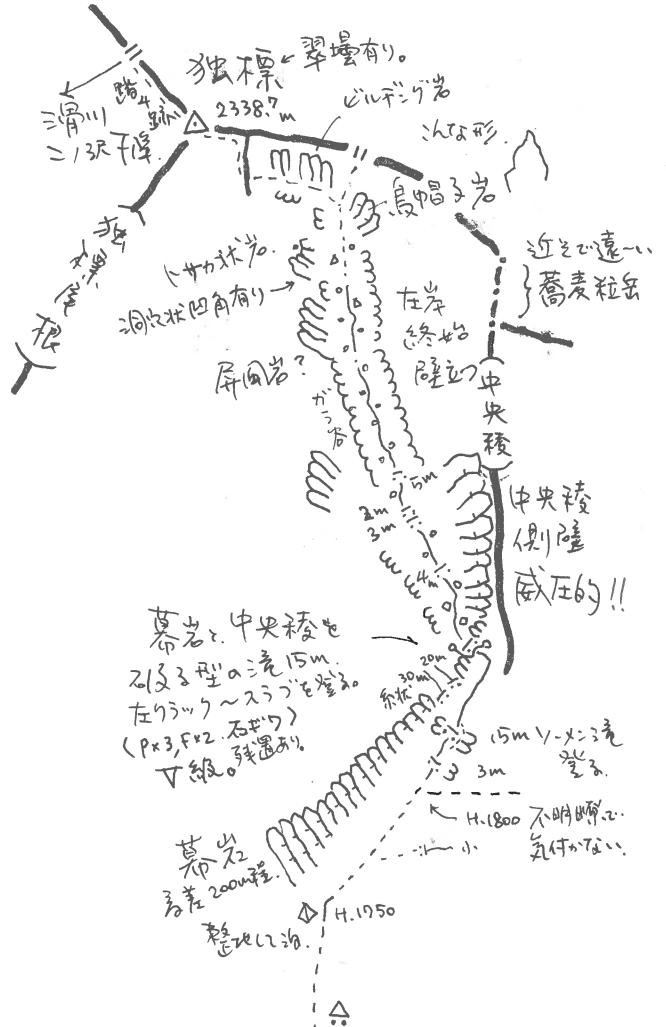 独標 ← 翠壇有り。
2338.7m
踏み跡
滑川
二ノ沢下降
ビルヂング岩
こんな形
烏帽子岩
近そで遠〜い
蕎麦粒岳
尾根
トサカ状岩
洞穴状凹角有り→
左岸
終始
壁立つ
中央稜
屏風岩?
ガラ谷
5m
2m
3m
4m
中央稜
側壁
威圧的!!
幕岩と、中央稜を
型の滝15m.
左クラック〜スラブを登る。
(P×3, F×2.
Ⅴ級。残置あり。
20m
30m
15m ソーメン滝
登る
3m
H.1800 不明瞭で
気付かない.
幕岩
高差200m程.
H.1750
整地して泊.